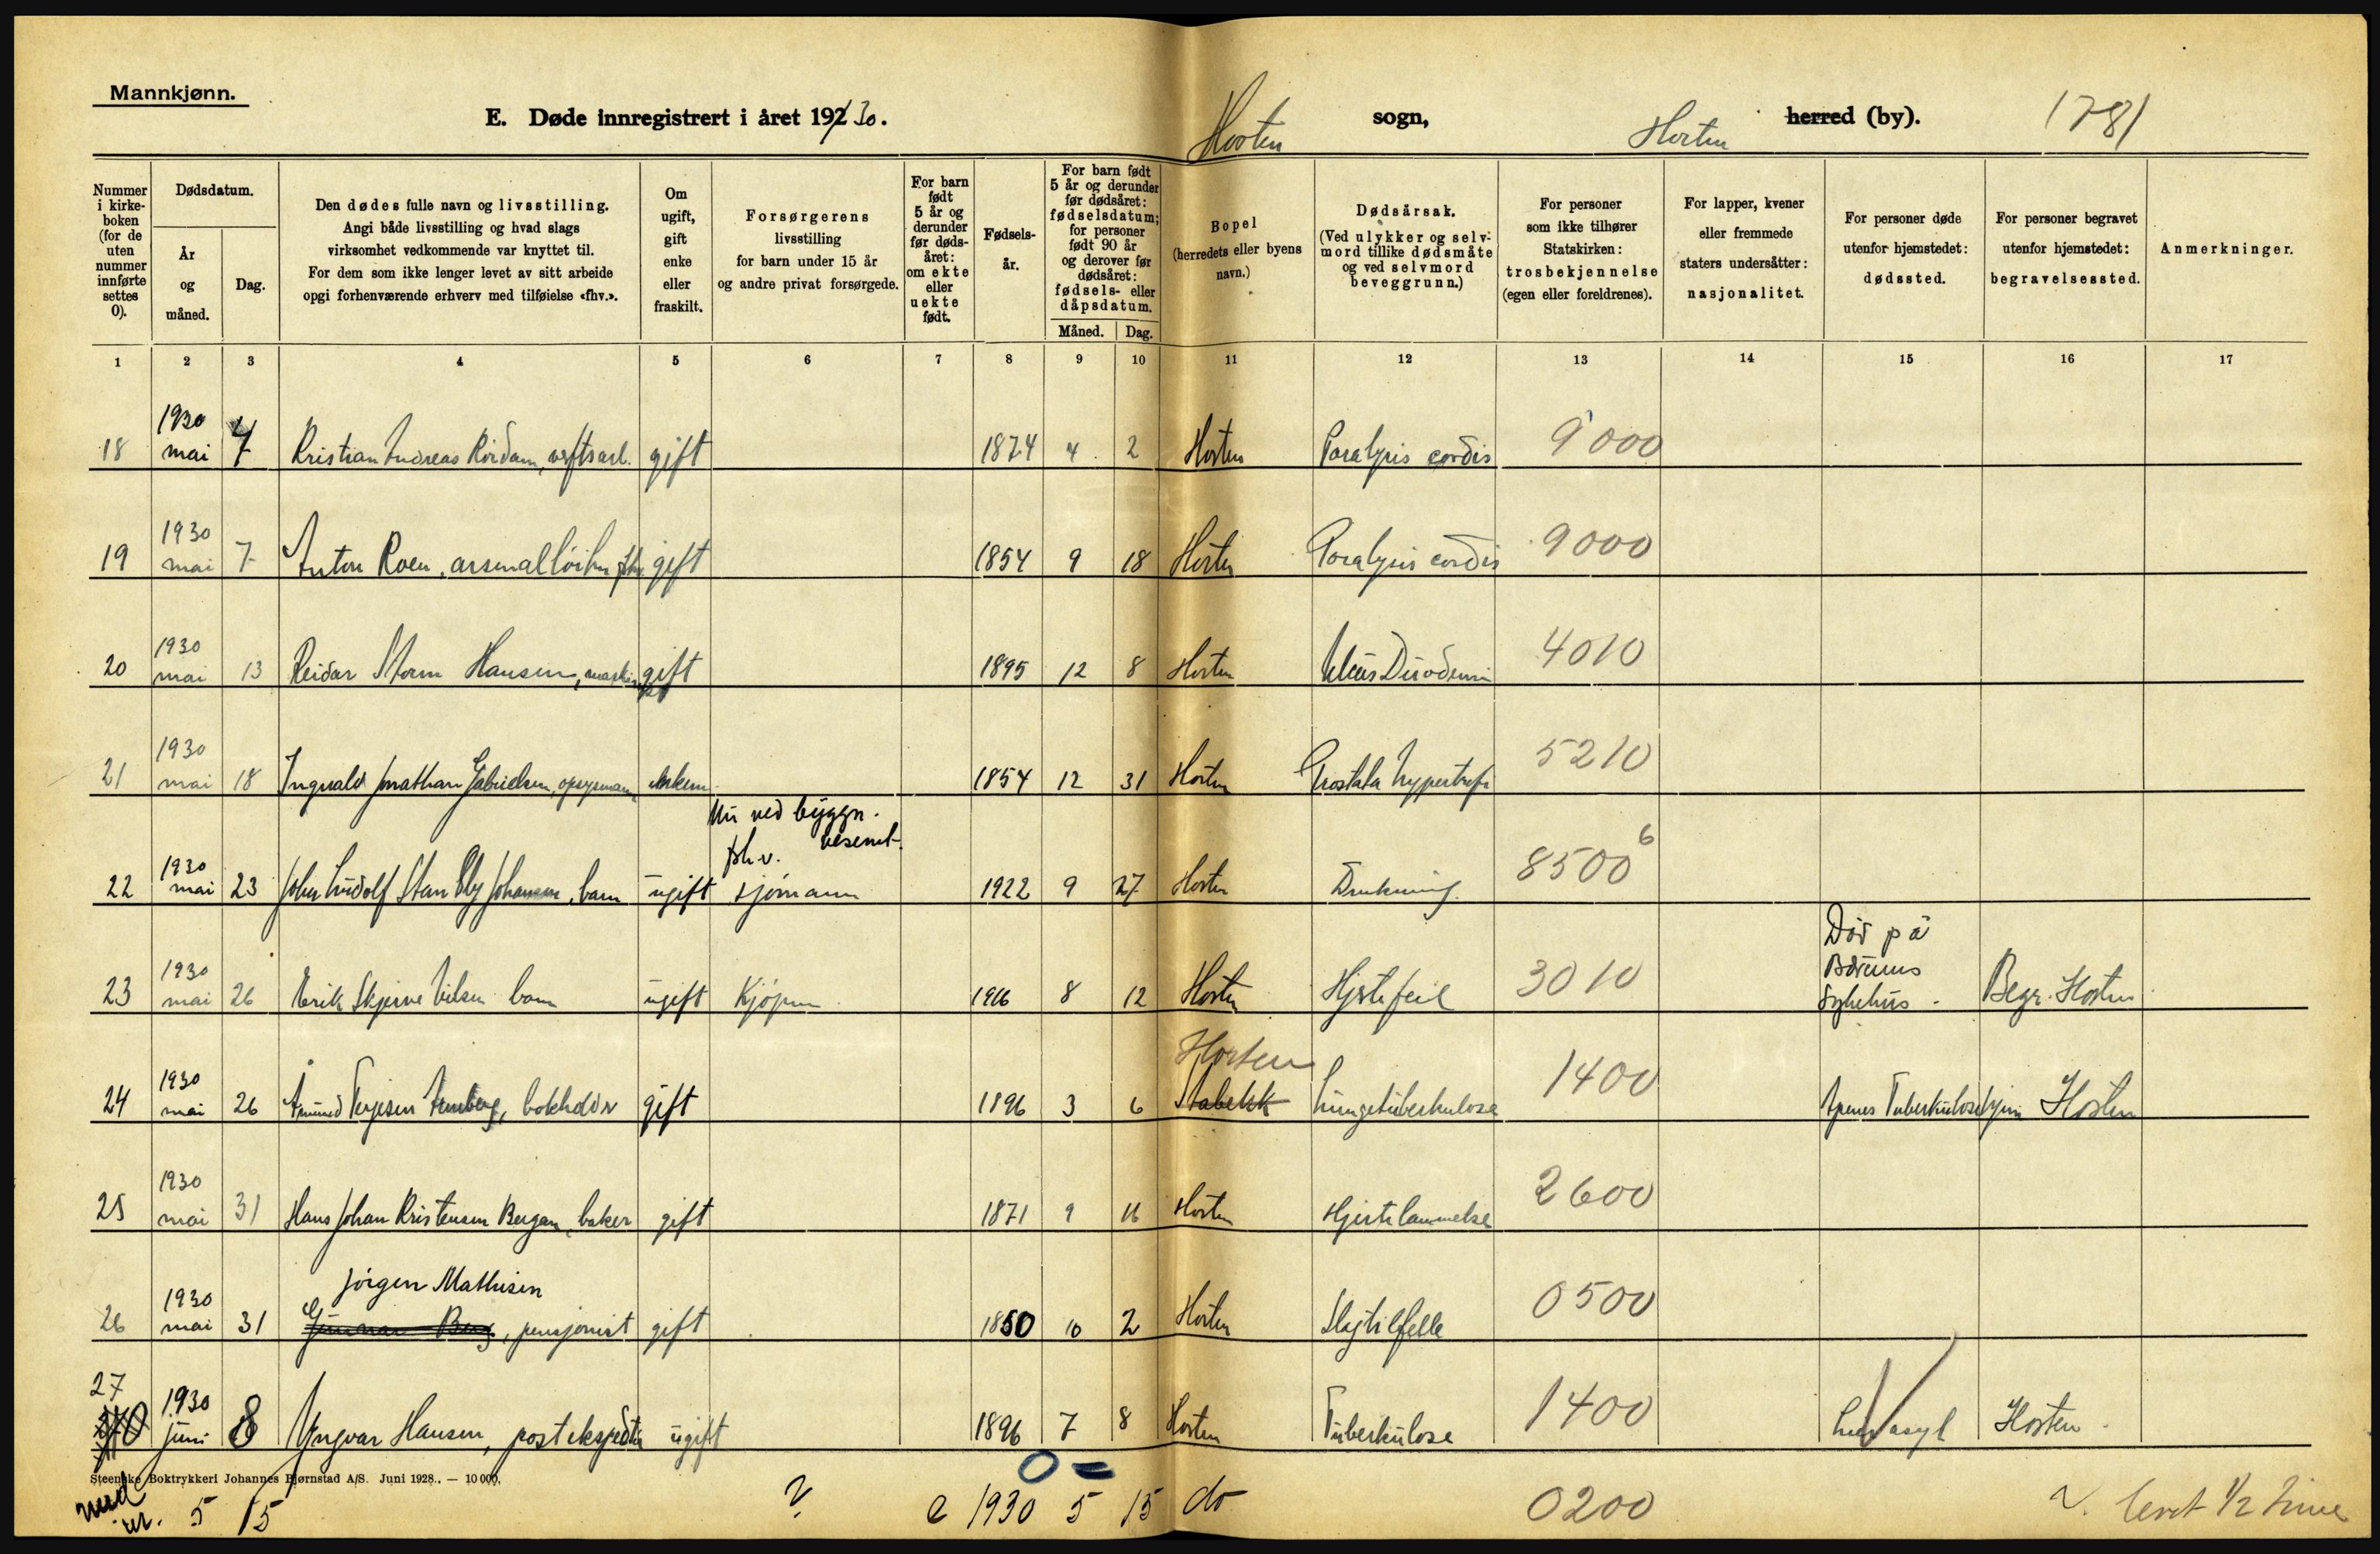 Mannkjønn.
E. Døde innregistrert i året 192 30.
Horten sogn,
Horten herred (by).
1781
Nummer i kirke- boken (for de uten nummer innførte settes 0).
Dødsdatum.
År og måned.
Dag.
Den dødes fulle navn og livsstilling.
Angi både livsstilling og hvad slags
virksomhet vedkommende var knyttet til.
For dem som ikke lenger levet av sitt arbeide
opgi forhenværende erhverv med tilføielse «fhv.».
Om ugift, gift enke eller fraskilt.
Forsørgerens livsstilling for barn under 15 år og andre privat forsørgede.
For barn født 5 år og derunder før døds- året: om ekte eller uekte født.
Fødsels- år.
For barn født 5 år og derunder før dødsåret: fødselsdatum; for personer født 90 år og derover før dødsåret: fødsels- eller dåpsdatum.
Måned. Dag.
Bopel (herredets eller byens navn.)
Dødsårsak. (Ved ulykker og selv- mord tillike dødsmåte og ved selvmord beveggrunn.)
For personer som ikke tilhører Statskirken: trosbekjennelse (egen eller foreldrenes).
For lapper, kvener eller fremmede staters undersåtter: nasjonalitet.
For personer døde utenfor hjemstedet: dødssted.
For personer begravet utenfor hjemstedet: begravelsessted.
Anmerkninger.
1 2 3 4 5 6 7 8 9 10 11 12 13 14 15 16 17
18 1930 mai 7 Kristian Andreas Rördam, verftsarb. gift 1874 4 2 Horten Paralysis cordis 9000
19 1930 mai 7 Anton Roen, gift 1854 9 18 Horten Paralysis cordis 9000
20 1930 mai 13 Reidar Storm Hansen, gift 1895 12 8 Horten Ulcus Duodeni 4010
21 1930 mai 18 Ingvald Jonathan Gabrielsen, opsynsmann enkem. 1854 12 31 Horten Prostata hypertrofi 5210
Nu ved byggn.
fhv. vesenet.
22 1930 mai 23 John Ludolf Johansen, barn ugift sjømann 1922 9 27 Horten Drukning 8500 6
Död på
Bærums
23 1930 mai 26 Erik Skjerve Nilsen barn ugift Kjøpm 1916 8 12 Horten Hjertefeil 3010 Sykehus - Begr. Horten
Horten
24 1930 mai 26 Terjesen bokholder gift 1896 3 6 Stabekk Lungetuberkulose 1400 Horten
25 1930 mai 31 Hans Johan Kristensen Bergan, baker gift 1871 9 16 Horten Hjertelammelse 2600
Jörgen Mathisen
26 1930 mai 31 Gunnar Berg, pensjonist gift 1850 10 2 Horten Slagtilfelle 0500
27
1930 juni 8 Yngvar Hansen, postekspeditør ugift 1896 7 8 Horten Tuberkulose 1400 Horten
Steenske Boktrykkeri Johannes Bjørnstad A/S. Juni 1928. — 10 000.
0 =
5 15 ? e 1930 5 15 do 0200 levet 1/2 time